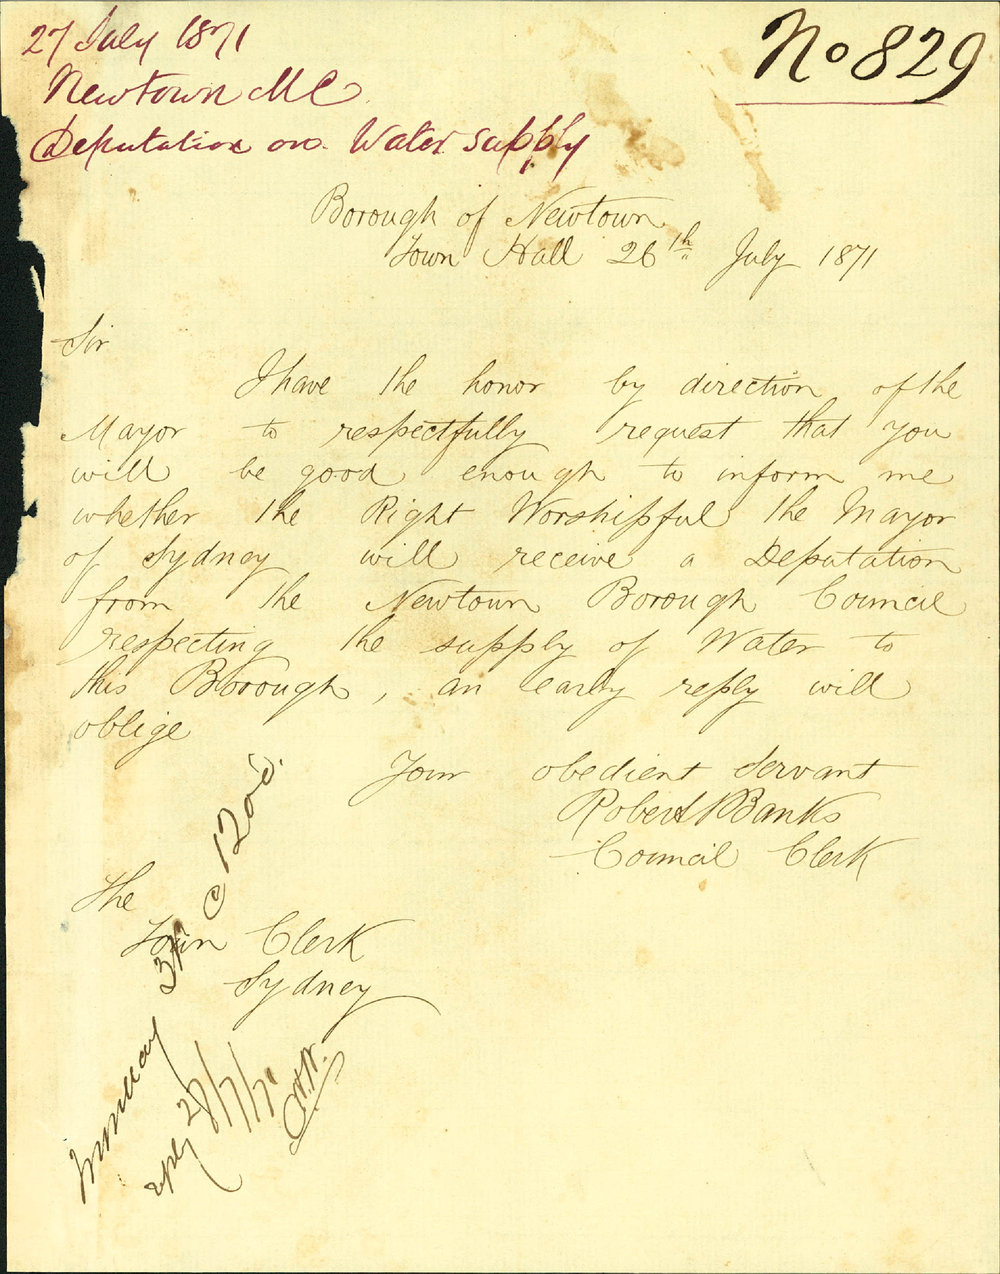 27 July 1871
No 829
Newtown M C
Deputation on Water supply
Borough of Newtown
Town Hall 26th July 1871
Sir
I have the honor by direction of the
Mayor to respectfully request that you
will be good enough to inform me
whether the Right Worshipful the Mayor
of Sydney will receive a Deputation
from the Newtown Borough Council
respecting the supply of Water to
this Borough, an early reply will
oblige
Your obedient Servant
Robert Banks
Council Clerk
The
Town Clerk
Sydney
Monday 31st @ 12 oc.
reply 28/7/71